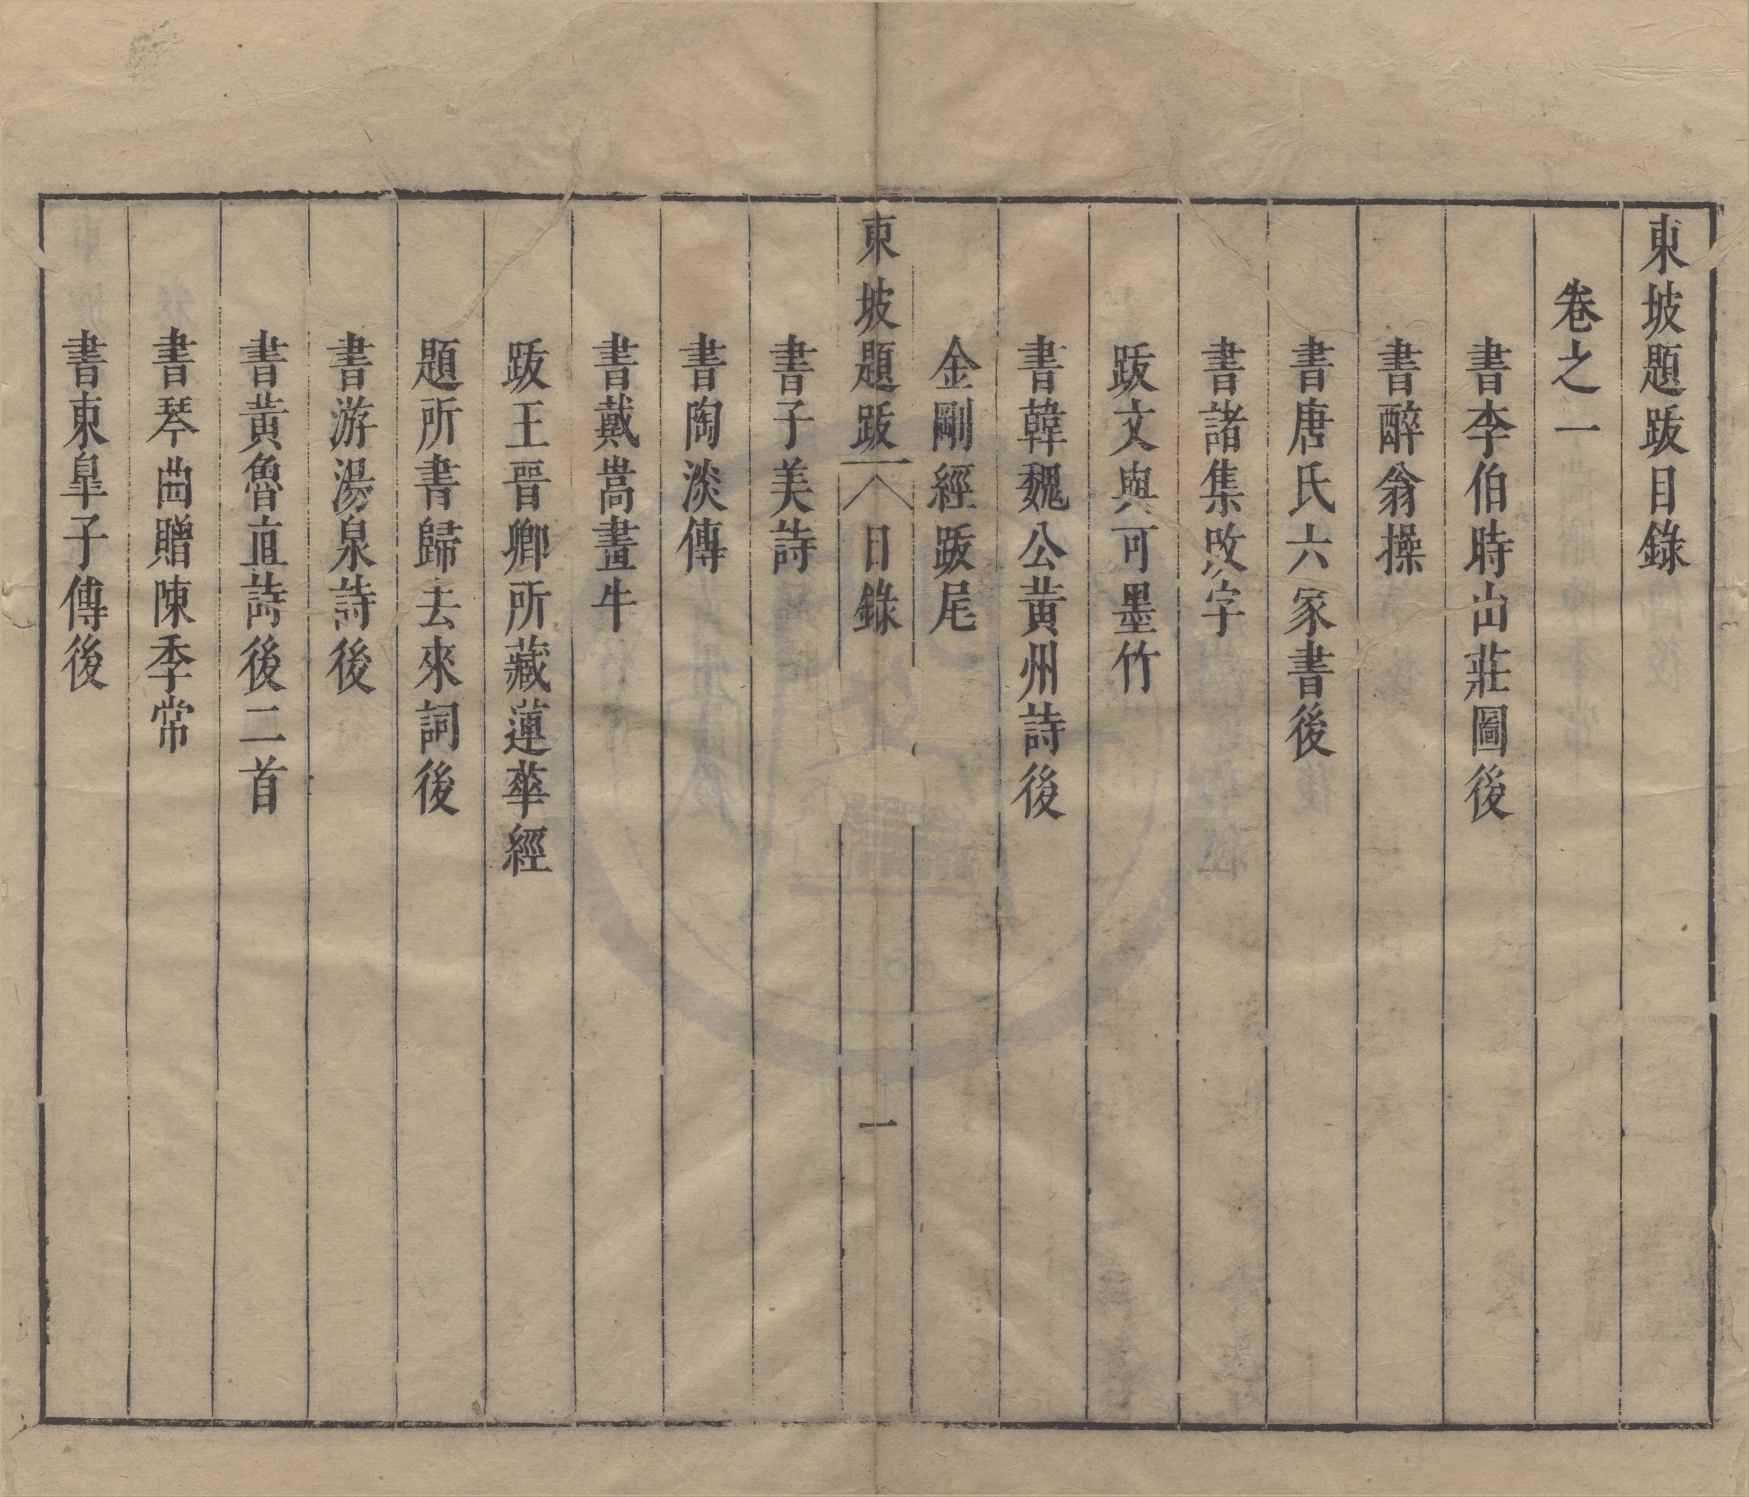 東坡題跋目錄
卷之一
書李伯時山莊圖後
書醉翁操
書唐氏六家書後
書諸集改字
跋文與可墨竹
書韓魏公黃州詩後
金剛經跋尾
東坡題跋 目錄 一
書子美詩
書陶淡傳
書戴嵩畫牛
跋王晉卿所藏蓮華經
題所書歸去來詞後
書游湯泉詩後
書黃魯直詩後二首
書琴曲贈陳季常
書東臯子傳後